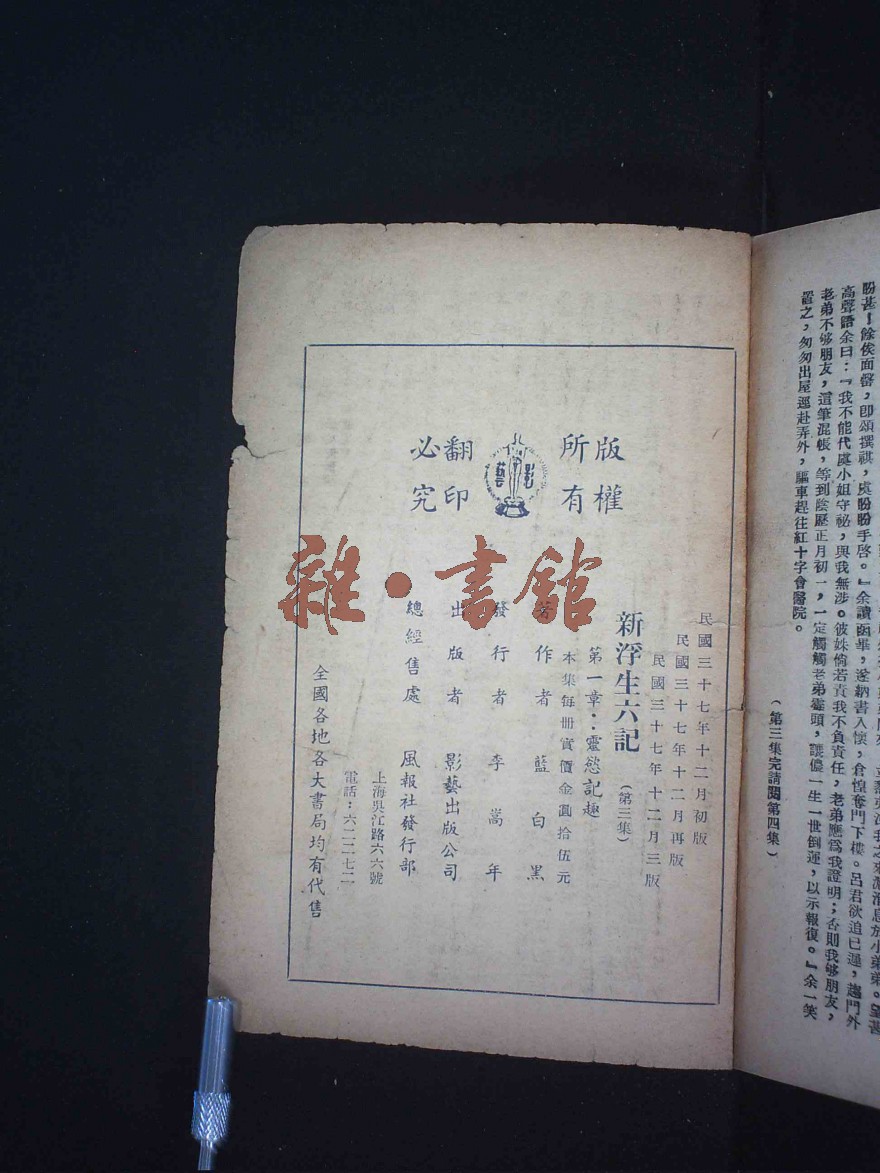 盼甚！餘俟面罄，卽頌撰祺，虞盼盼手啓。』余讀函畢，遂納書入懷，倉惶奪門下樓。呂君欲追已遲，趨門外
高聲語余曰：『我不能代虞小姐守祕，與我無涉。彼姝倘若責我不負責任，老弟應爲我證明；否則我够朋友，
老弟不够朋友，這筆混帳，等到陰歷正月初一，一定觸觸老弟霉頭，讓儂一生一世倒運，以示報復。』余一笑
置之，匆匆出屋逕赴弄外，驅車趕往紅十字會醫院。
（第三集完請閱第四集）
版權
所有
影藝
翻印
必究
民國三十七年十二月初版
民國三十七年十二月再版
民國三十七年十二月三版
新浮生六記（第三集）
第一章：靈慾記趣
本集每冊實價金圓拾伍元
著作者 藍白黑
發行者 李嵩年
出版者 影藝出版公司
總經售處 風報社發行部
上海吳江路六六號
電話：六二二七二
全國各地各大書局均有代售
雜·書館